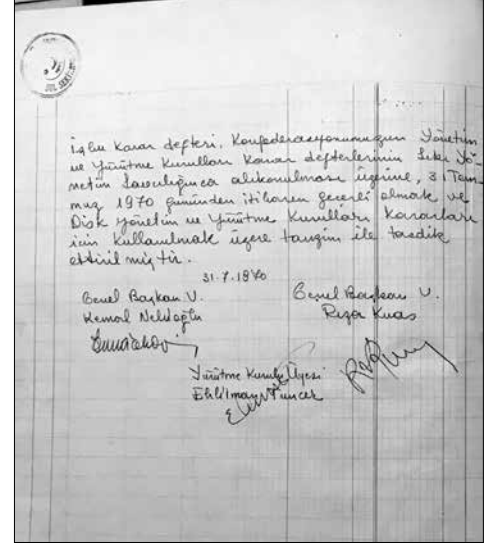 İşbu karar defteri, Konfederasyonumuzun Yönetim
ve Yürütme Kurulları Karar defterlerinin Sıkı Yö-
netim Savcılığınca alıkonulması üzerine, 31 Tem-
muz 1970 gününden itibaren geçerli olmak ve
Disk yönetim ve Yürütme Kurulları Kararları
için kullanılmak üzere tanzim ile tasdik
ettirilmiştir.
31.7.1970
Genel Başkan V.
Kemal Nebioğlu
Genel Başkan V.
Rıza Kuas
Yürütme Kurulu Üyesi
Ehliiman Tuncer